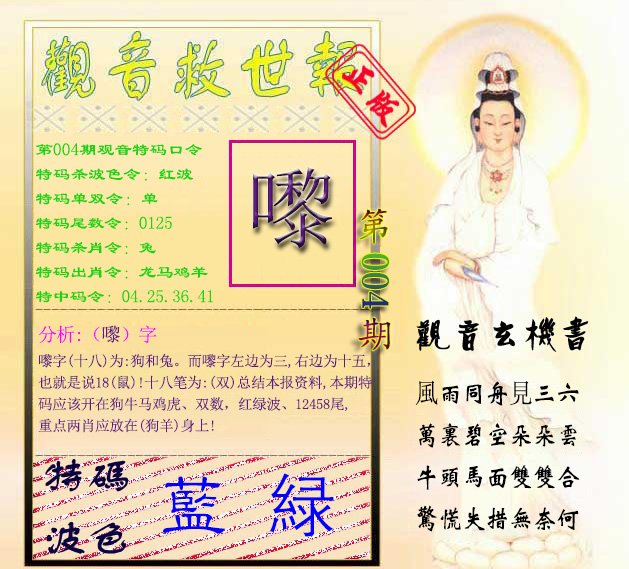 觀音救世報
正版
第004期观音特码口令
特码杀波色令：红波
特码单双令：单
特码尾数令：0125
特码杀肖令：兔
特码出肖令：龙马鸡羊
特中码令：04.25.36.41
嚟
第004期
分析:（嚟）字
嚟字(十八)为:狗和兔。而嚟字左边为三,右边为十五,
也就是说18(鼠)!十八笔为:(双)总结本报资料,本期特
码应该开在狗牛马鸡虎、双数，红绿波、12458尾,
重点两肖应放在(狗羊)身上!
特碼
波色
藍 緑
觀音玄機書
風雨同舟見三六
萬裏碧空朵朵雲
牛頭馬面雙雙合
驚慌失措無奈何